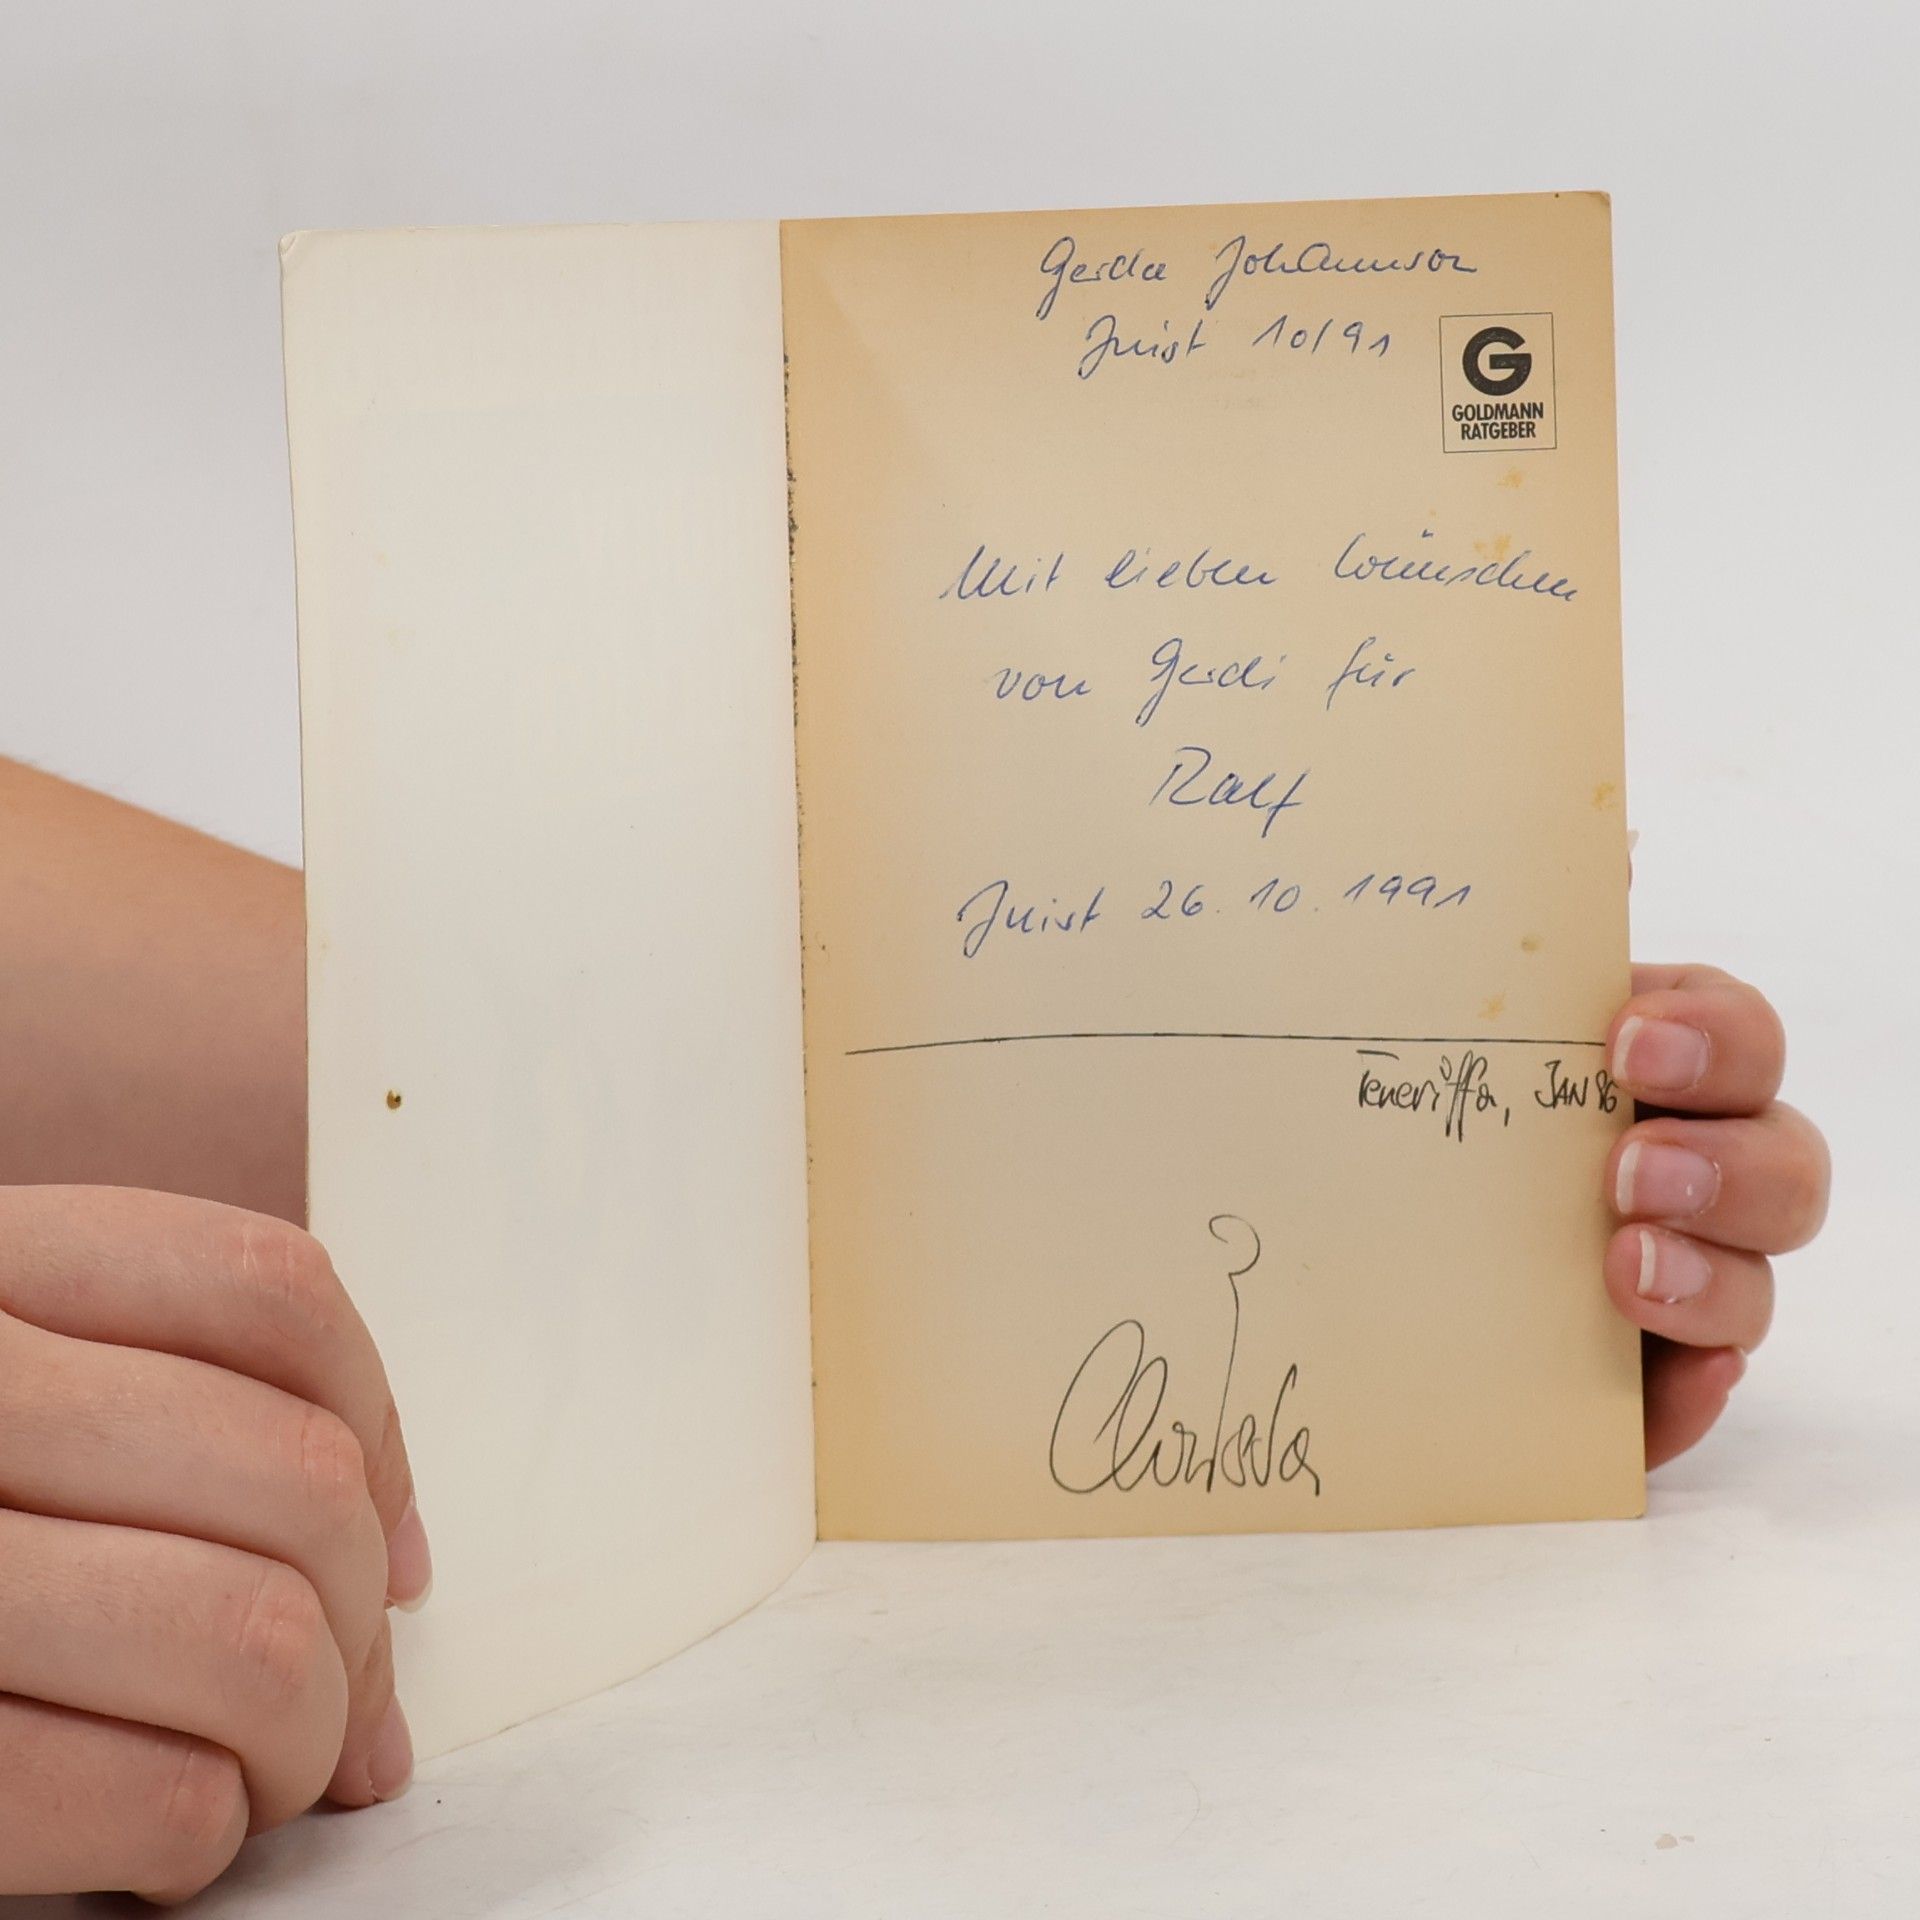 Gerda Johannson
Juist 10/91
G
GOLDMANN
RATGEBER
Mit lieben Wünschen
von Gerdi für
Ralf
Juist 26.10.1991
Teneriffa, JAN 86